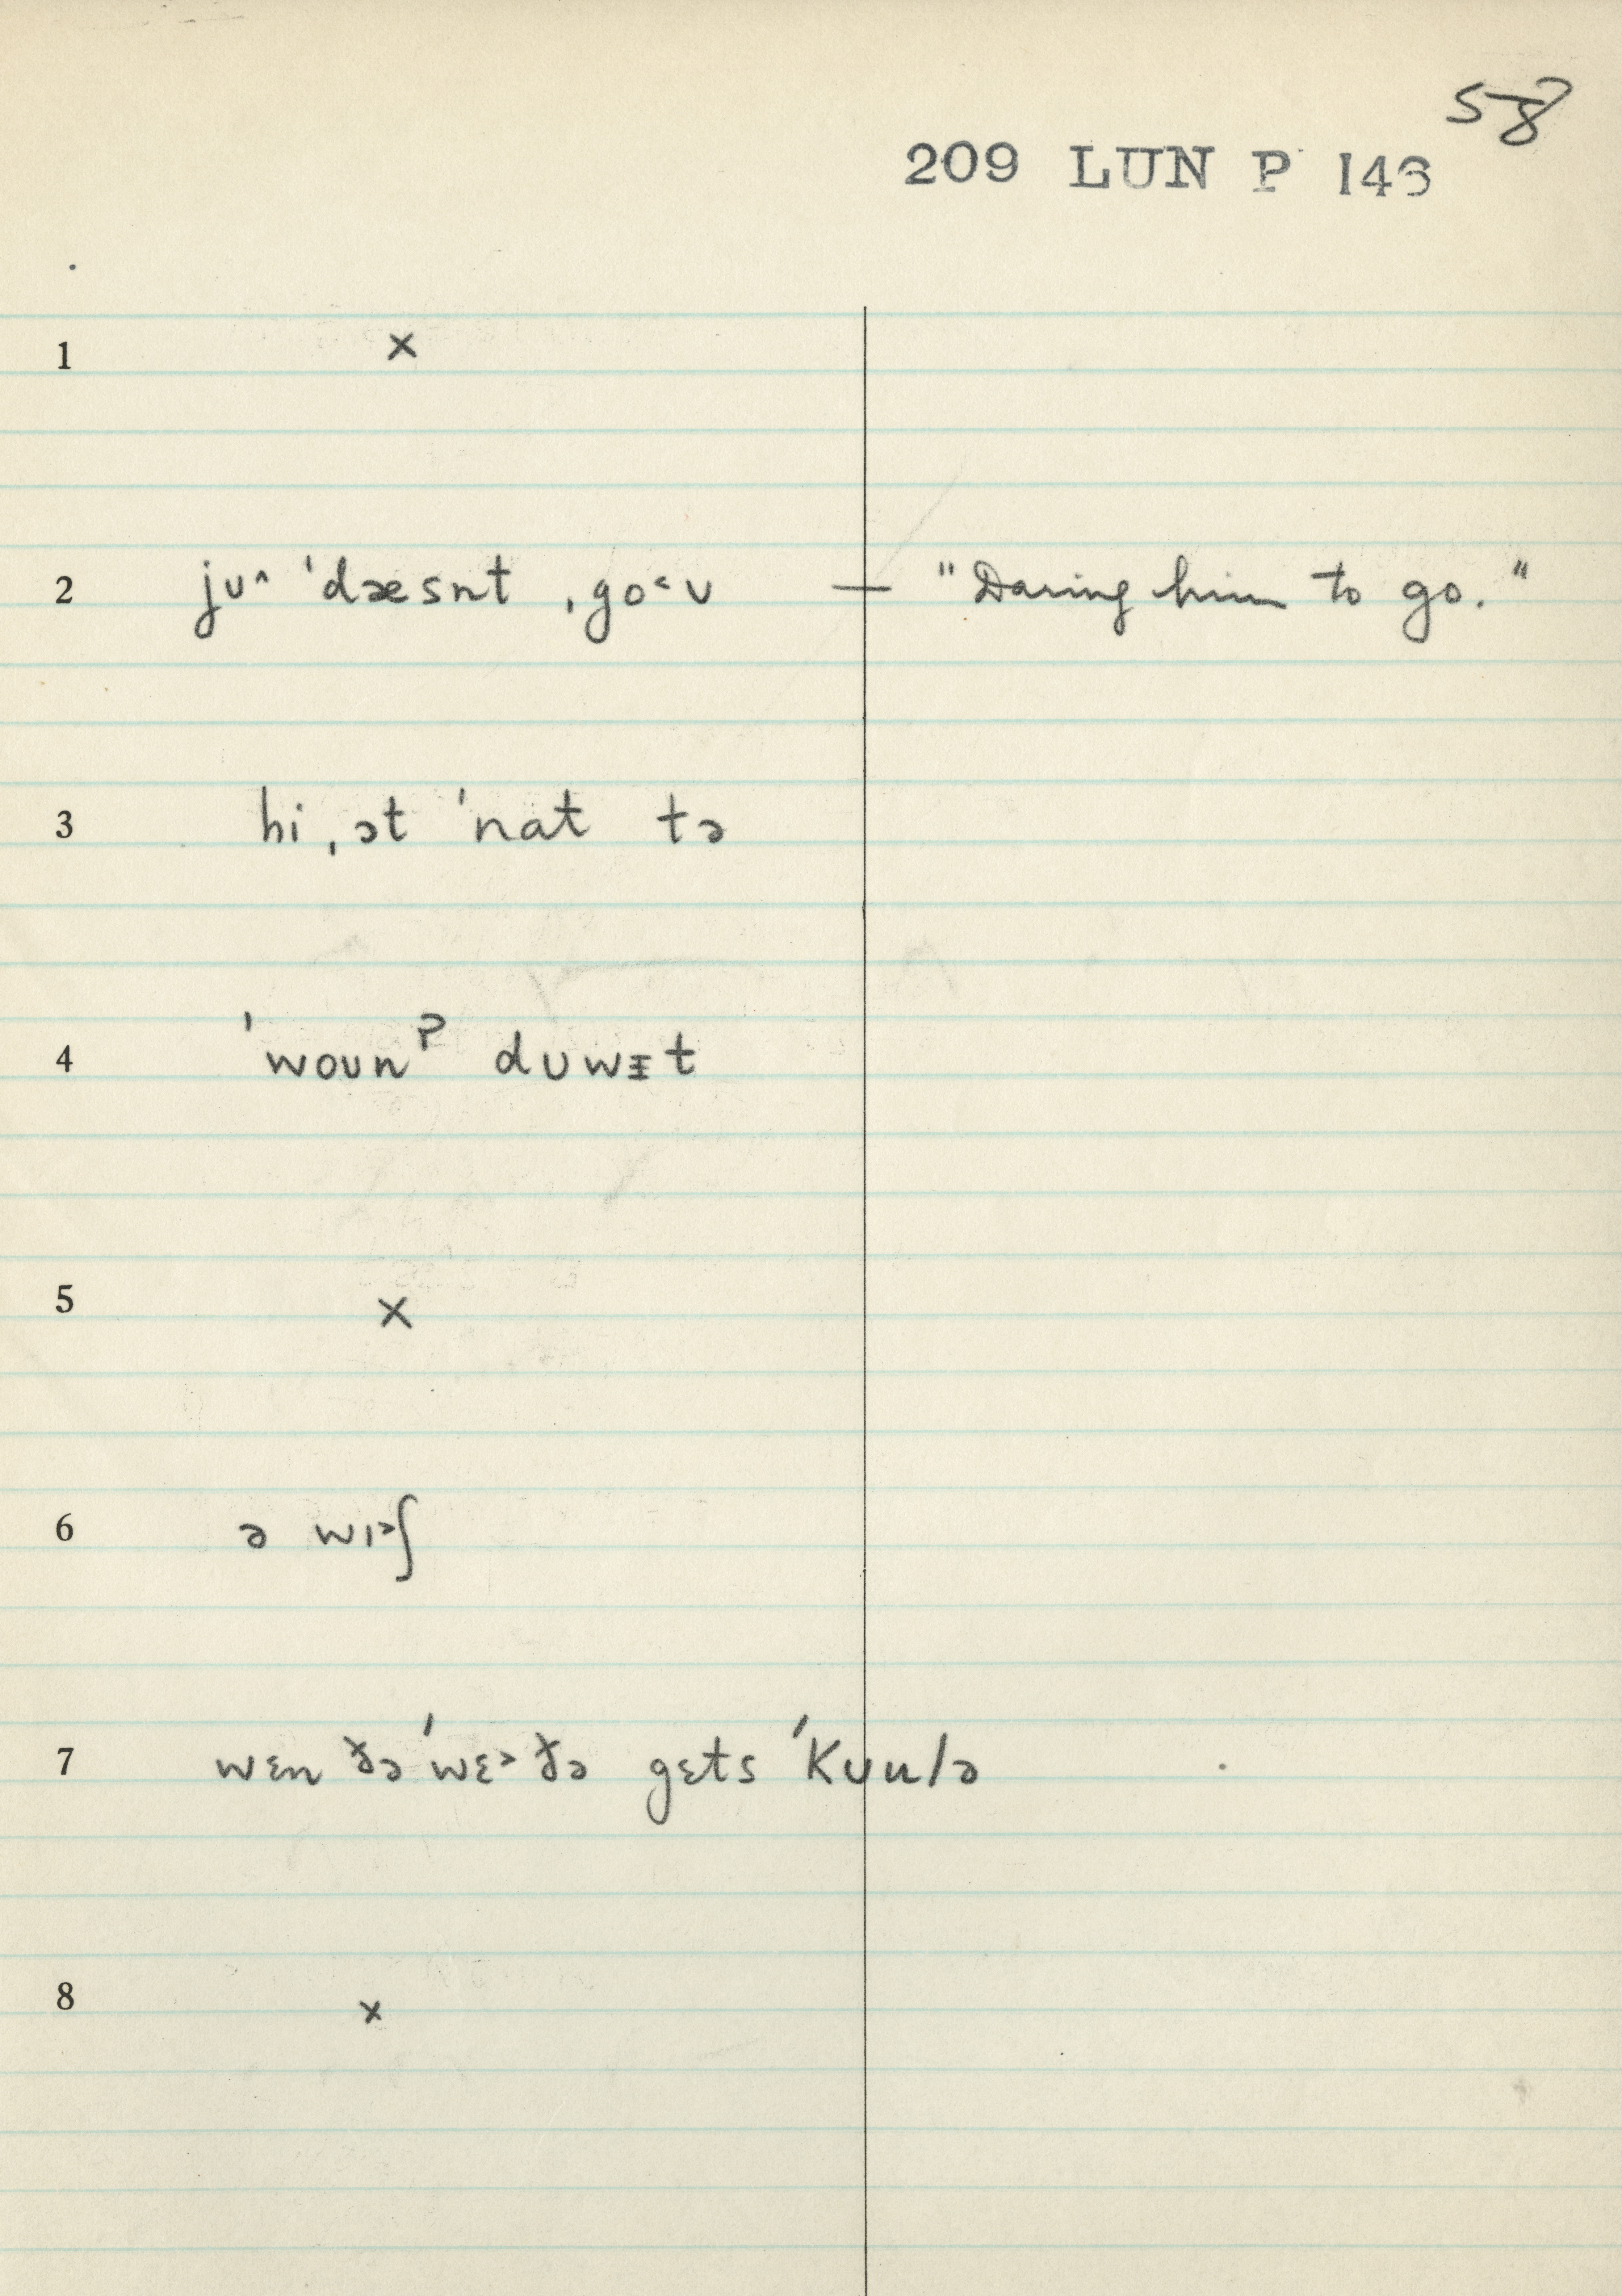 58
209 LUN P 143
1 ×
2 jʊ˄ ˈdæsnt ˌgo˂ʊ — "Daring him to go."
3 hi ˌɔt ˈnat tə
4 ˈwoʊnˀ dʊwɪt
5 ×
6 ə wɪ˃ʃ
7 wɛn ðə ˈwɛ˃ðə gɛts ˈkuulə
8 ×